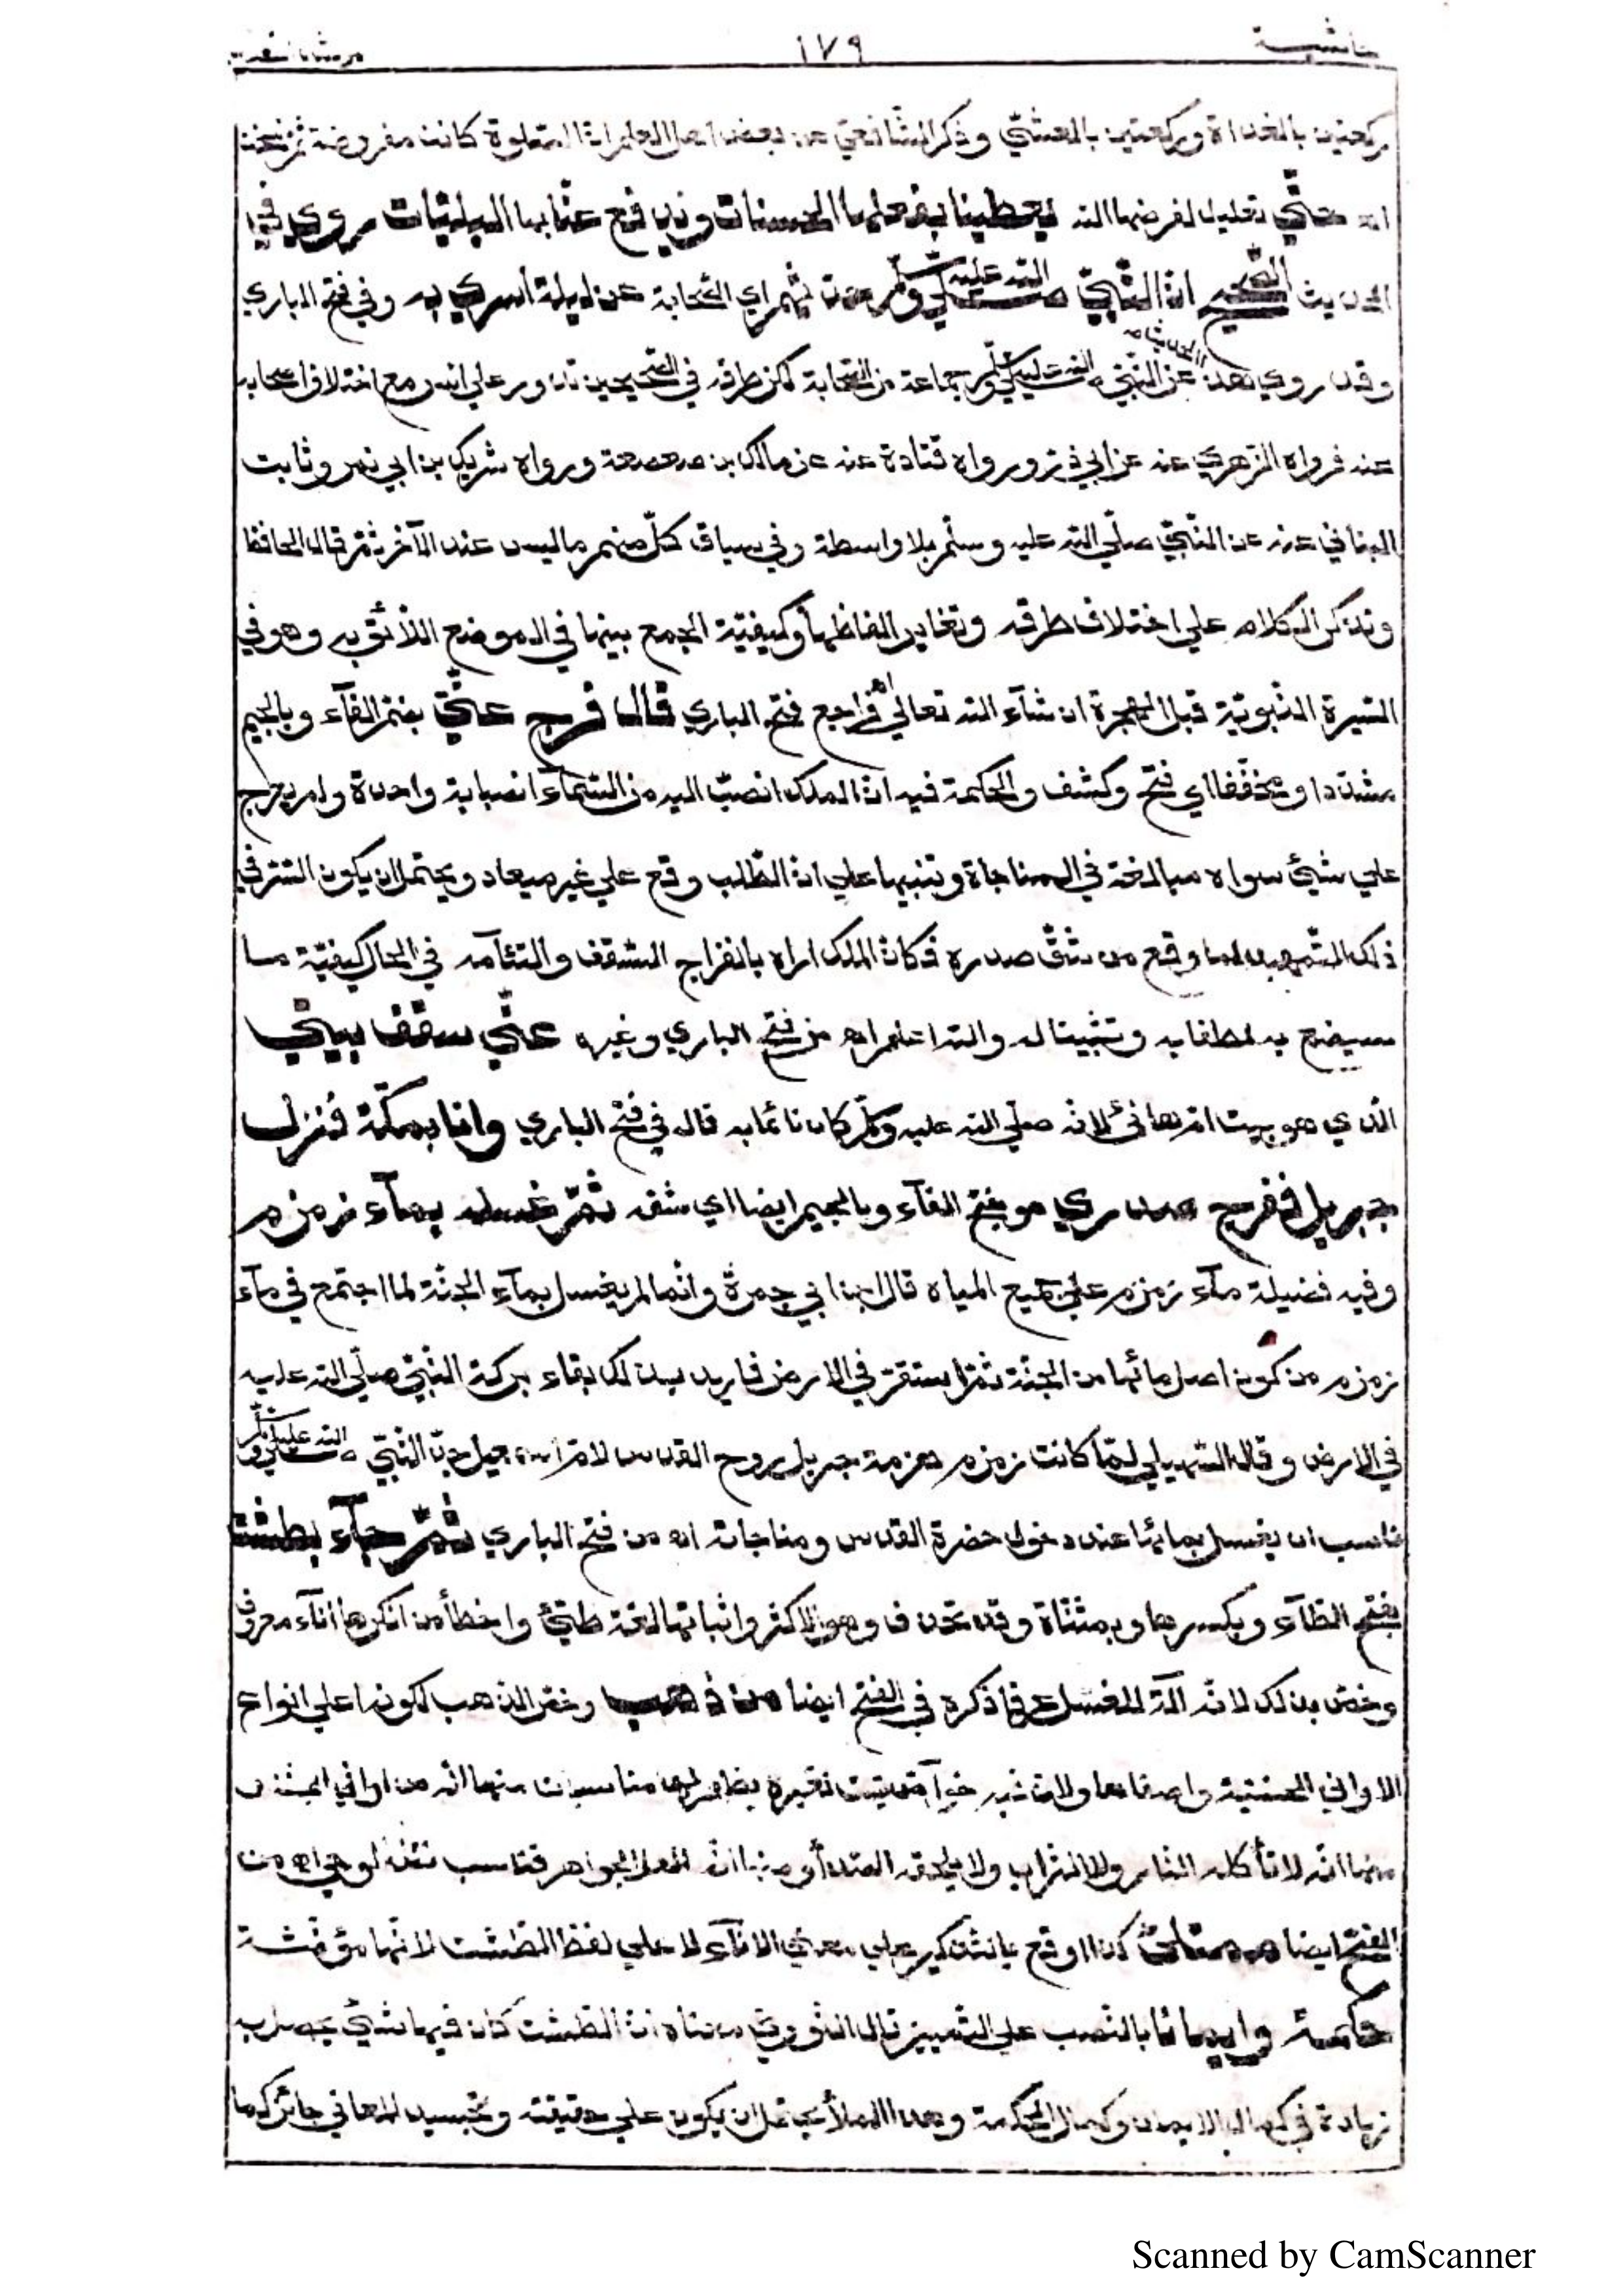 حاشية ١٧٩
ركعتين بالغداة وركعتين بالعشيّ وذكر الشافعيّ عن بعض اهل العلم انّ الصّلوة كانت مفروضة ثمّ نسخت
اهـ تعليل لفرضها الله يعطينا بفعلها الحسنات ويدفع عنّا بها البليّات روي في
الحديث الصّحيح انّ النّبيّ صلّى الله عليه وسلّم اي الصّحابة عن ليلة أسري به وفي فتح الباري
وقد روي هذا الحديث عن النّبيّ صلّى الله عليه وسلّم جماعة من الصّحابة لكن طرقه في الصّحيحين تدور علي انس مع اختلاف اصحابه
عنه فرواه الزّهري عنه عن ابي ذر ورواه قتادة عنه عن مالك بن صعصعة ورواه شريك بن ابي نمر وثابت
البناني عنه عن النّبيّ صلّي الله عليه وسلّم بلا واسطة وفي سياق كلّ منهم ما ليس عند الآخر ثمّ قال الحافظ
ونذكر الكلام علي اختلاف طرقه وتغاير الفاظها وكيفيّة الجمع بينها في الموضع اللائق به وهو في
السّيرة النّبويّة قبل الهجرة ان شآء الله تعالي اهـ فراجع فتح الباري قال فرج عنّي بضمّ الفآء وبالجيم
مشدّدا ومخفّفا اي فتح وكشف والحكمة فيه انّ الملك انصبّ اليه من السّمآء انصبابة واحدة ولم يعرج
علي شيئ سواه مبالغة في المناجاة وتنبيها علي انّ الطّلب وقع علي غير ميعاد ويحتمل ان يكون السّرّ في
ذلك التّمهيد لما وقع من شقّ صدره فكانّ الملك اراه بانفراج السّقف والتئآمه في الحال كيفيّة ما
سيصنع به لطفا به وتثبيتا له والله اعلم اهـ من فتح الباري وغيره عنّي سقف بيتي
الّذي هو بيت امّ هانئ لانّه صلّي الله عليه وسلّم كان نائما به قاله في فتح الباري وانا بمكّة فنزل
جبريل ففرج صدري هو بفتح الفآء وبالجيم ايضا اي شقه ثمّ غسله بمآء زمزم
وفيه فضيلة مآء زمزم علي جميع المياه قال ابن ابي جمرة وانّما لم يغسل بمآء الجنّة لما اجتمع في مآء
زمزم من كون اصل مائها من الجنّة ثمّ استقرّ في الارض فاريد بذلك بقاء بركة النّبيّ صلّي الله عليه
في الارض وقال السّهيلي لمّا كانت زمزم هزمة جبريل روح القدس لامّ اسمعيل جدّ النّبيّ صلّى الله عليه وسلّم
ناسب ان يغسل بمائها عند دخول حضرة القدس ومناجاته اهـ من فتح الباري ثمّ جآء بطست
بفتح الطّآء وبكسرها وبمثناة وقد تحذف وهو الاكثر واثباتها لغة طيّئ واخطأ من انكرها انآء معروف
وخصّ بذلك لانّه آلة الغسل عرفا ذكره في الفتح ايضا من ذهب وخصّ الذهب لكونه اعلي انواع
الاواني الحسّيّة واصفاها ولانّ فيه خوآصّ ليست لغيره ويظهر لها مناسبات منها انّه من اواني الجنّة
ومنها انّه لا تأكله النّار ولا التّراب ولا يلحقه الصّدأ ومنها انّه اثقل الجواهر فناسب ثقل الوحي اهـ من
الفتح ايضا كذا وقع بالتّذكير علي معني الانآء لا علي لفظ الطّست لانّها مؤنّثة
حكمة وايمانا بالنّصب علي التّمييز قال النّووي معناه انّ الطّست كان فيها شيئ يحصل به
زيادة في كمال الايمان وكمال الحكمة وهذا الملأ يحتمل ان يكون علي حقيقته وتجسيد المعاني جائز كما
Scanned by CamScanner